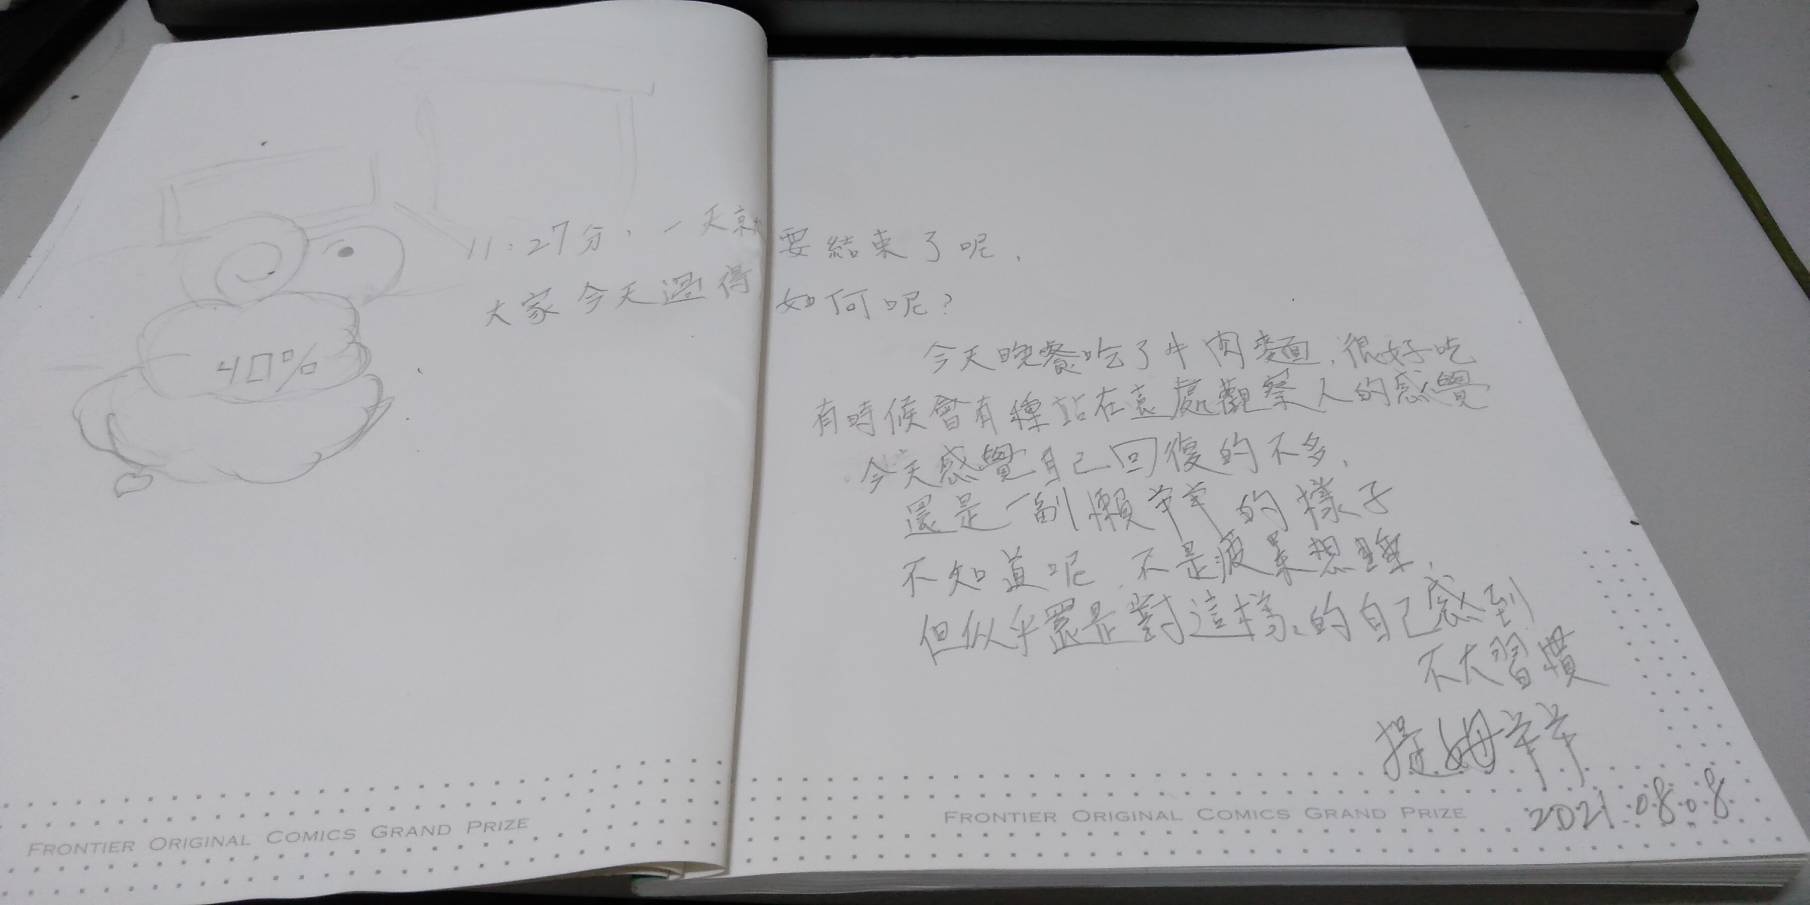 11:27分，一天就要結束了呢，
大家今天過得如何呢？
40%
今天晚餐吃了牛肉麵，很好吃
有時候會有種站在遠處觀察人的感覺
今天感覺自己回復的不多，
還是一副懶羊羊的樣子
不知道呢，不是疲累想睡，
但似乎還是對這樣的自己感到
不大習慣
提姆羊羊
2021.08.08
FRONTIER ORIGINAL COMICS GRAND PRIZE
FRONTIER ORIGINAL COMICS GRAND PRIZE